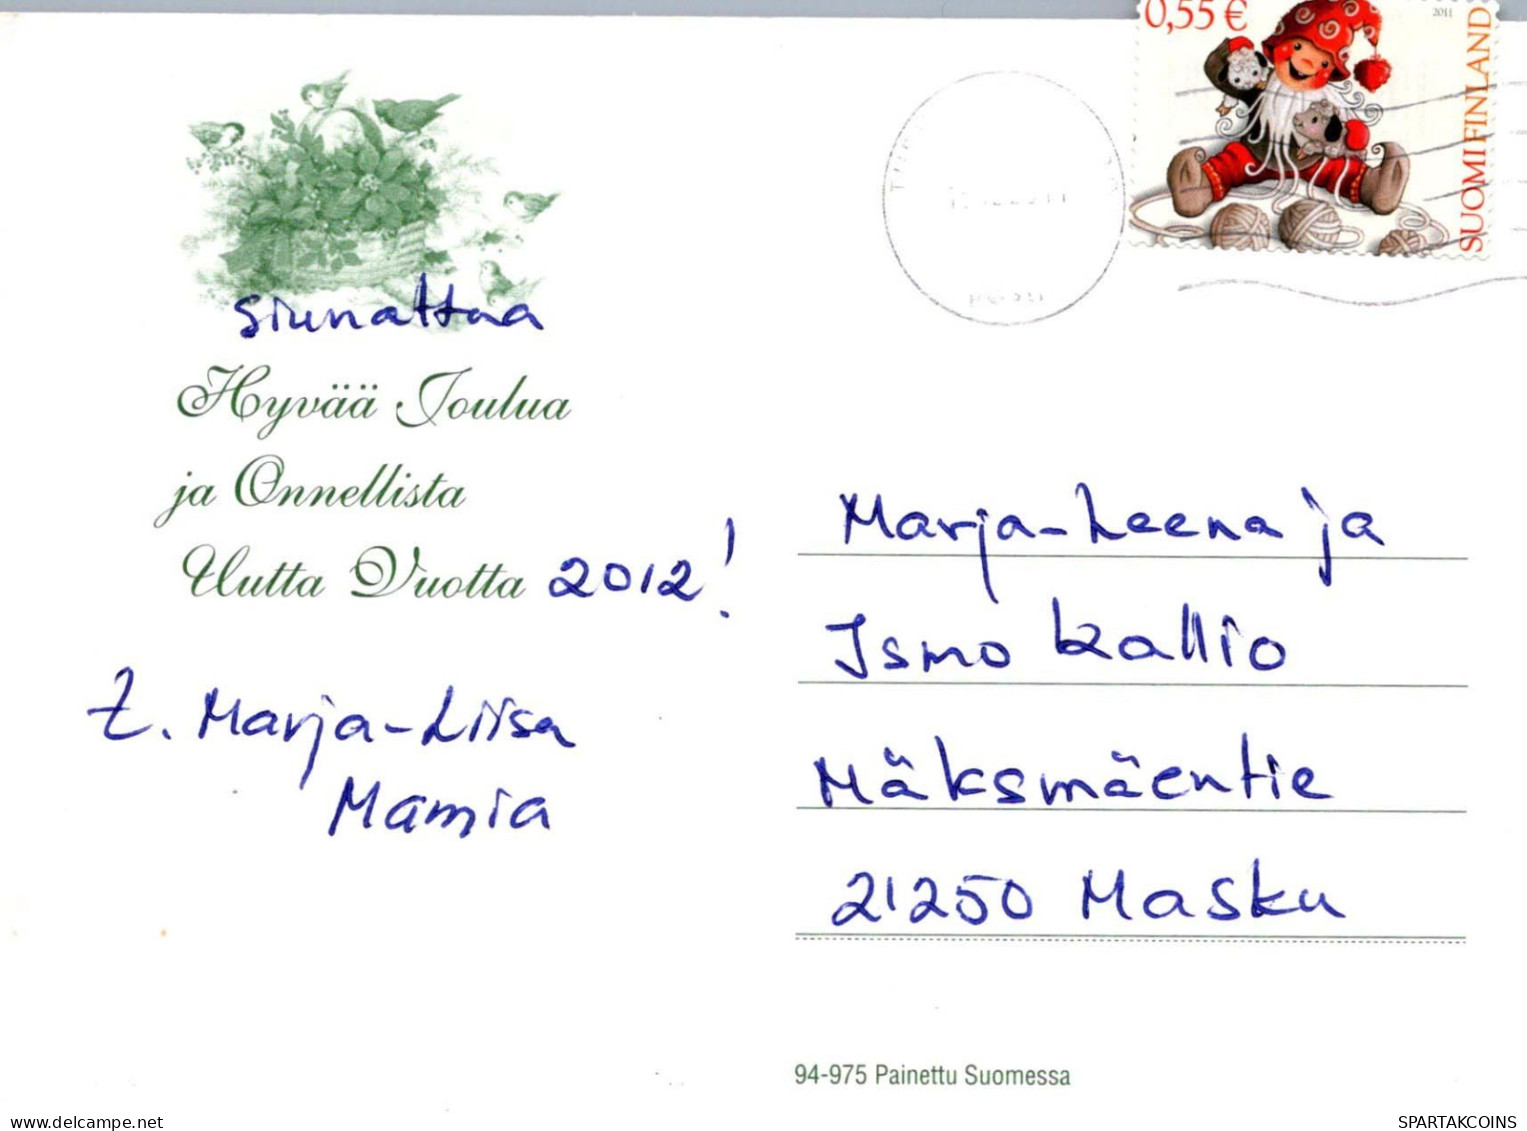 0,55 €
2011
SUOMI FINLAND
siunattua
Hyvää Joulua
ja Onnellista
Uutta Vuotta 2012!
T. Marja-Liisa
Mamia
Marja-Leena ja
Ismo Kallio
Mäksmäentie
21250 Masku
94-975 Painettu Suomessa
delcampe.net
SPARTAKCOINS